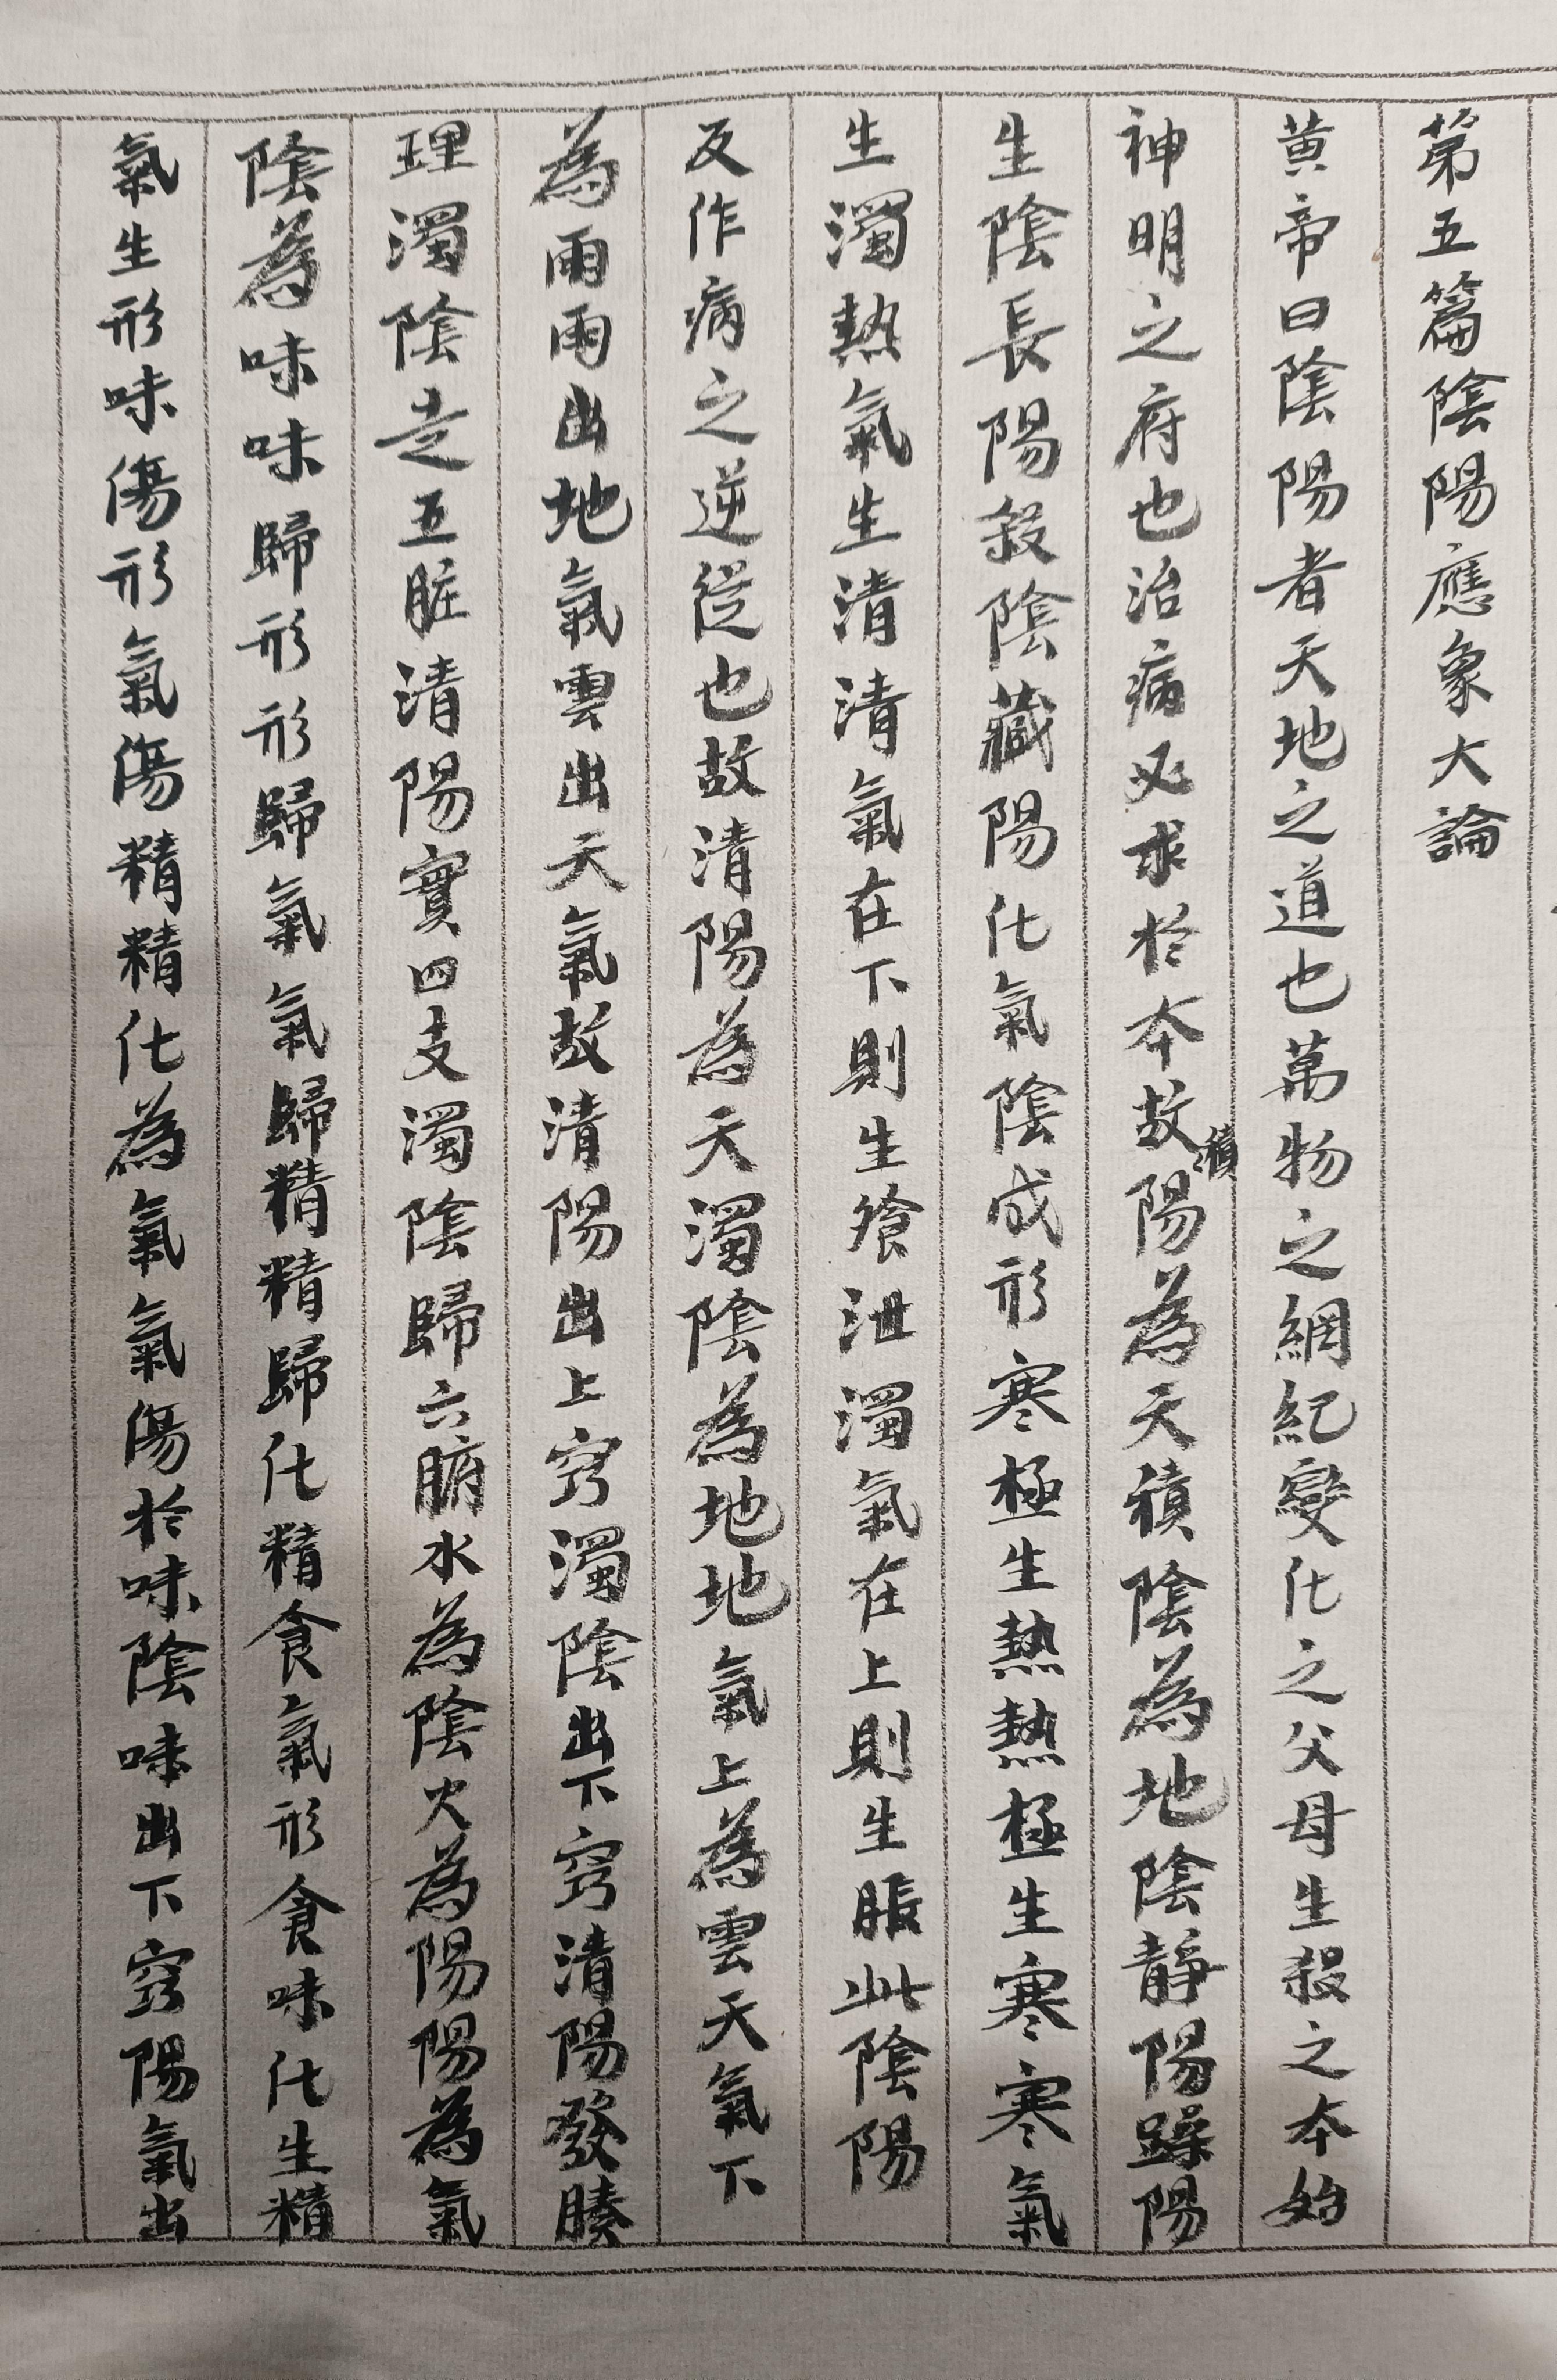 第五篇陰陽應象大論
黄帝曰陰陽者天地之道也萬物之網紀變化之父母生殺之本始
神明之府也治病必求於本故積陽為天積陰為地陰靜陽躁陽
生陰長陽殺陰藏陽化氣陰成形寒極生熱熱極生寒寒氣
生濁熱氣生清清氣在下則生飧泄濁氣在上則生脹此陰陽
反作病之逆從也故清陽為天濁陰為地地氣上為雲天氣下
為雨雨出地氣雲出天氣故清陽出上窍濁陰出下窍清陽發腠
理濁陰走五脏清陽實四支濁陰歸六腑水為陰火為陽陽為氣
陰為味味歸形形歸氣氣歸精精歸化精食氣形食味化生精
氣生形味傷形氣傷精精化為氣氣傷於味陰味出下窍陽氣出